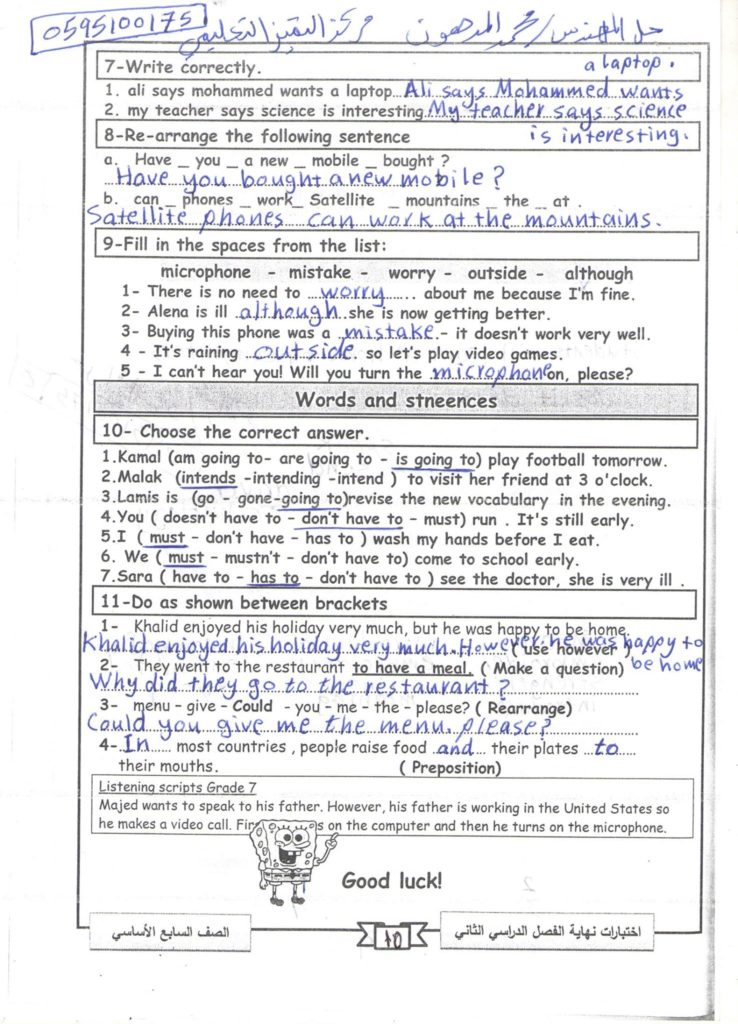 0595100175 مركز التميز التعليمي حل المهندس/محمد المدهون
7-Write correctly. a laptop.
1. ali says mohammed wants a laptop...Ali says Mohammed wants
2. my teacher says science is interesting.My teacher says science
8-Re-arrange the following sentence is interesting.
a. Have _ you _ a new _ mobile _ bought ?
Have you bought a new mobile ?
b. can _ phones _ work_ Satellite _ mountains _ the _ at .
Satellite phones can work at the mountains.
9-Fill in the spaces from the list:
microphone - mistake - worry - outside - although
1- There is no need to ...worry...... about me because I'm fine.
2- Alena is ill .although..she is now getting better.
3- Buying this phone was a .mistake.- it doesn't work very well.
4 - It's raining ..outside. so let's play video games.
5 - I can't hear you! Will you turn the microphone on, please?
Words and stneences
10- Choose the correct answer.
1.Kamal (am going to- are going to - is going to) play football tomorrow.
2.Malak (intends -intending -intend ) to visit her friend at 3 o'clock.
3.Lamis is (go - gone-going to)revise the new vocabulary in the evening.
4.You ( doesn't have to - don't have to - must) run . It's still early.
5.I ( must - don't have - has to ) wash my hands before I eat.
6. We ( must - mustn't - don't have to) come to school early.
7.Sara ( have to - has to - don't have to ) see the doctor, she is very ill .
11-Do as shown between brackets
1- Khalid enjoyed his holiday very much, but he was happy to be home.
Khalid enjoyed his holiday very much. However, he was happy to ( use however )
2- They went to the restaurant to have a meal. ( Make a question) be home
Why did they go to the restaurant ?
3- menu - give - Could - you - me - the - please? ( Rearrange)
Could you give me the menu, please?
4-.In..... most countries , people raise food .and... their plates ..to.....
their mouths. ( Preposition)
Listening scripts Grade 7
Majed wants to speak to his father. However, his father is working in the United States so
he makes a video call. s on the computer and then he turns on the microphone.
Good luck!
الصف السابع الأساسي 10 اختبارات نهاية الفصل الدراسي الثاني